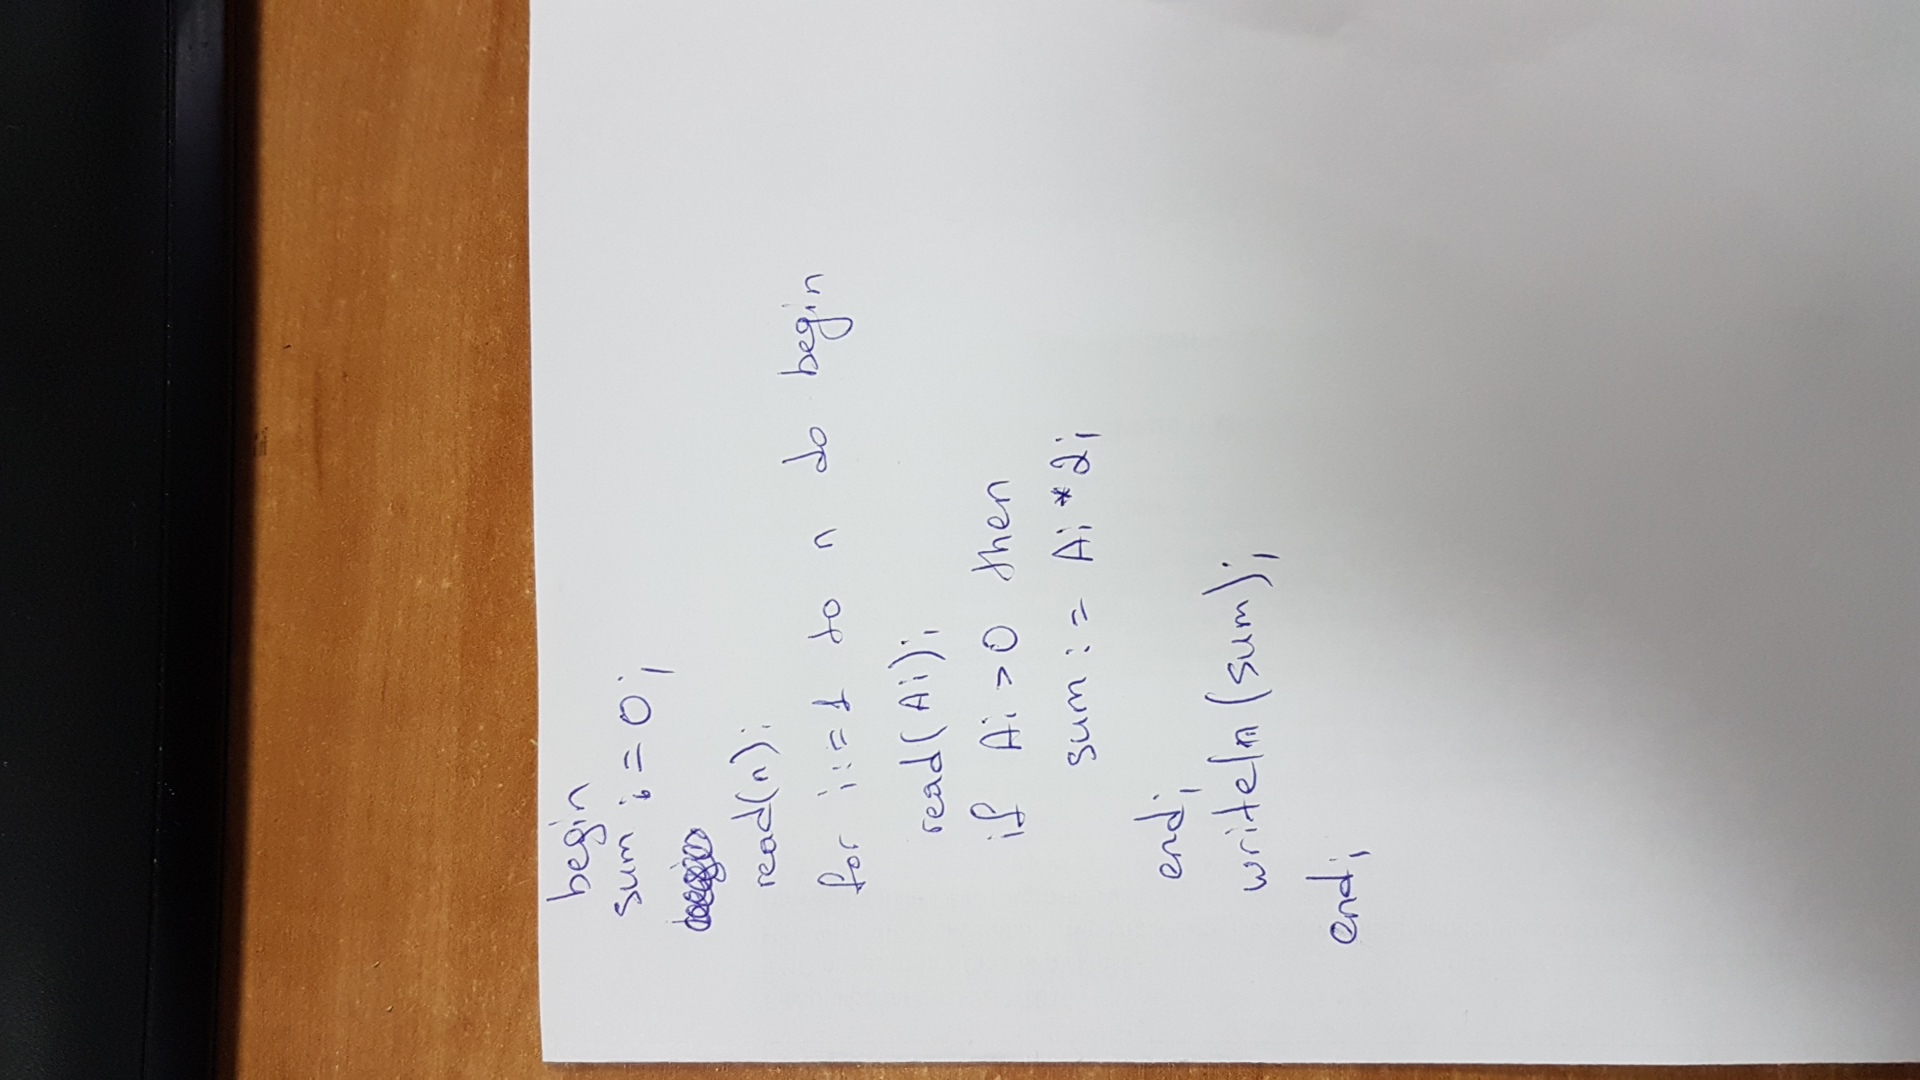 begin
sum := 0;
read(n);
for i:=1 to n do begin
read(Ai);
if Ai > 0 then
sum := Ai * 2;
end;
writeln(sum);
end;